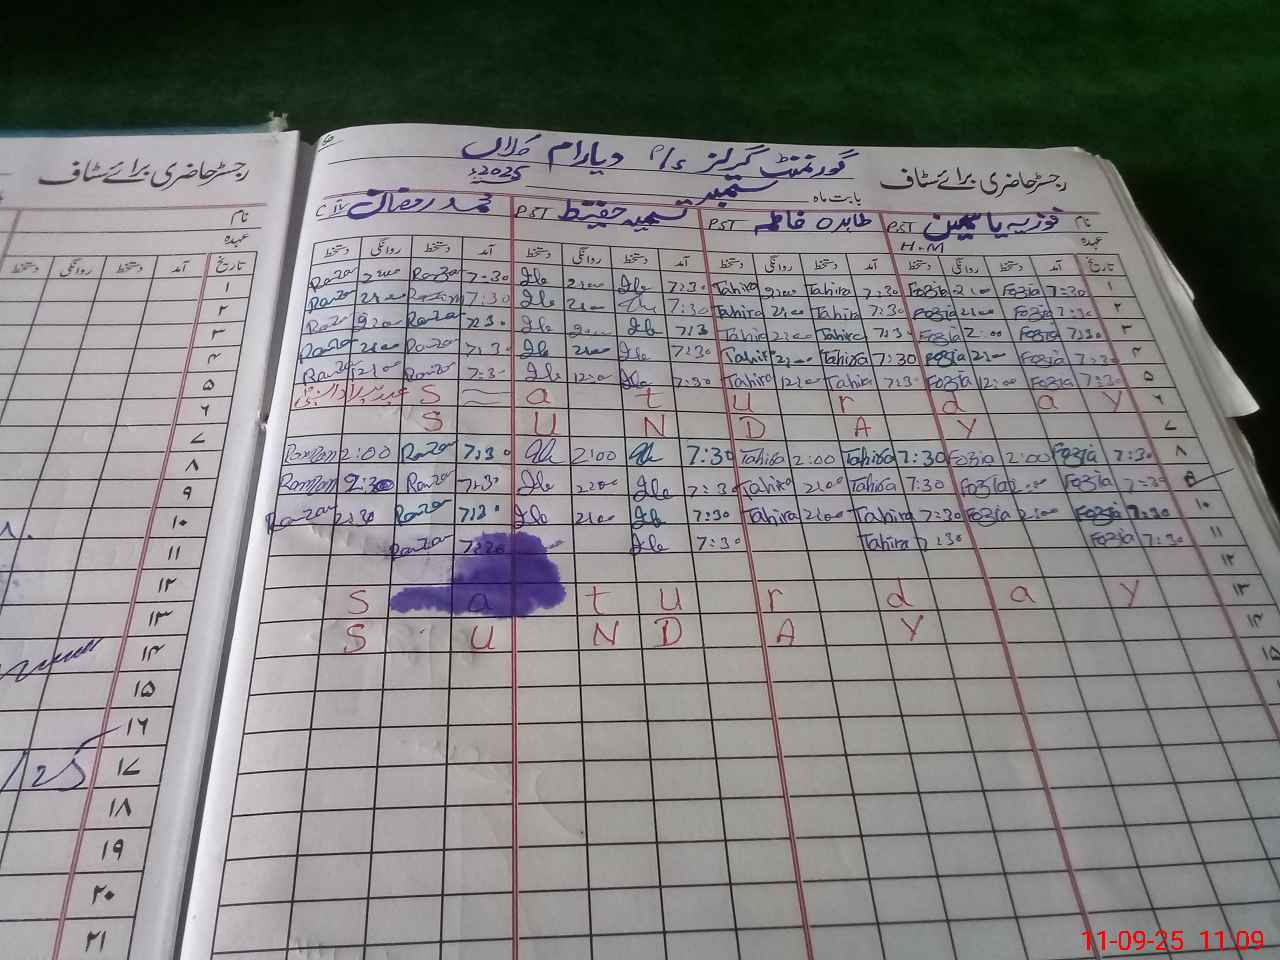 رجسٹر حاضری برائے سٹاف
گورنمنٹ گرلز P/S دیارام کلاں
رجسٹر حاضری برائے سٹاف
بابت ماہ ستمبر 2025ء
نام فوزیہ یاسمین PST طاہرہ فاطمہ PST ثمینہ حفیظ PST محمد رمضان C IV
عہدہ H.M
تاریخ آمد دستخط روانگی دستخط آمد دستخط روانگی دستخط آمد دستخط روانگی دستخط آمد دستخط روانگی دستخط
۱ 7:30 Fozia 2:00 Fozia 7:30 Tahira 2:00 Tahira 7:30 2:00 7:30 Ramzan 2:00 Ramzan
۲ 7:30 Fozia 2:00 Fozia 7:30 Tahira 2:00 Tahira 7:30 2:00 7:30 Ramzan 2:00 Ramzan
۳ 7:30 Fozia 2:00 Fozia 7:30 Tahira 2:00 Tahira 7:30 2:00 7:30 Ramzan 2:00 Ramzan
۴ 7:30 Fozia 2:00 Fozia 7:30 Tahira 2:00 Tahira 7:30 2:00 7:30 Ramzan 2:00 Ramzan
۵ 7:30 Fozia 12:00 Fozia 7:30 Tahira 12:00 Tahira 7:30 12:00 7:30 Ramzan 12:00 Ramzan
۶ S a t u r d a y عید میلاد النبی
۷ S U N D A Y
۸ 7:30 Fozia 2:00 Fozia 7:30 Tahira 2:00 Tahira 7:30 2:00 7:30 Ramzan 2:00 Ramzan
۹ 7:30 Fozia 2:00 Fozia 7:30 Tahira 2:00 Tahira 7:30 2:00 7:30 Ramzan 2:30 Ramzan
۱۰ 7:30 Fozia 2:00 Fozia 7:30 Tahira 2:00 Tahira 7:30 2:00 7:30 Ramzan 2:30 Ramzan
۱۱ 7:30 Fozia 7:30 Tahira 7:30 7:30 Ramzan
۱۲
۱۳ S a t u r d a y
۱۴ S U N D A Y
۱۵
نام
عہدہ
تاریخ آمد دستخط روانگی دستخط
۱
۲
۳
۴
۵
۶
۷
۸
۹
۱۰
۱۱
۱۲
۱۳
۱۴
۱۵
۱۶
۱۷
۱۸
۱۹
۲۰
۲۱
11-09-25 11:09